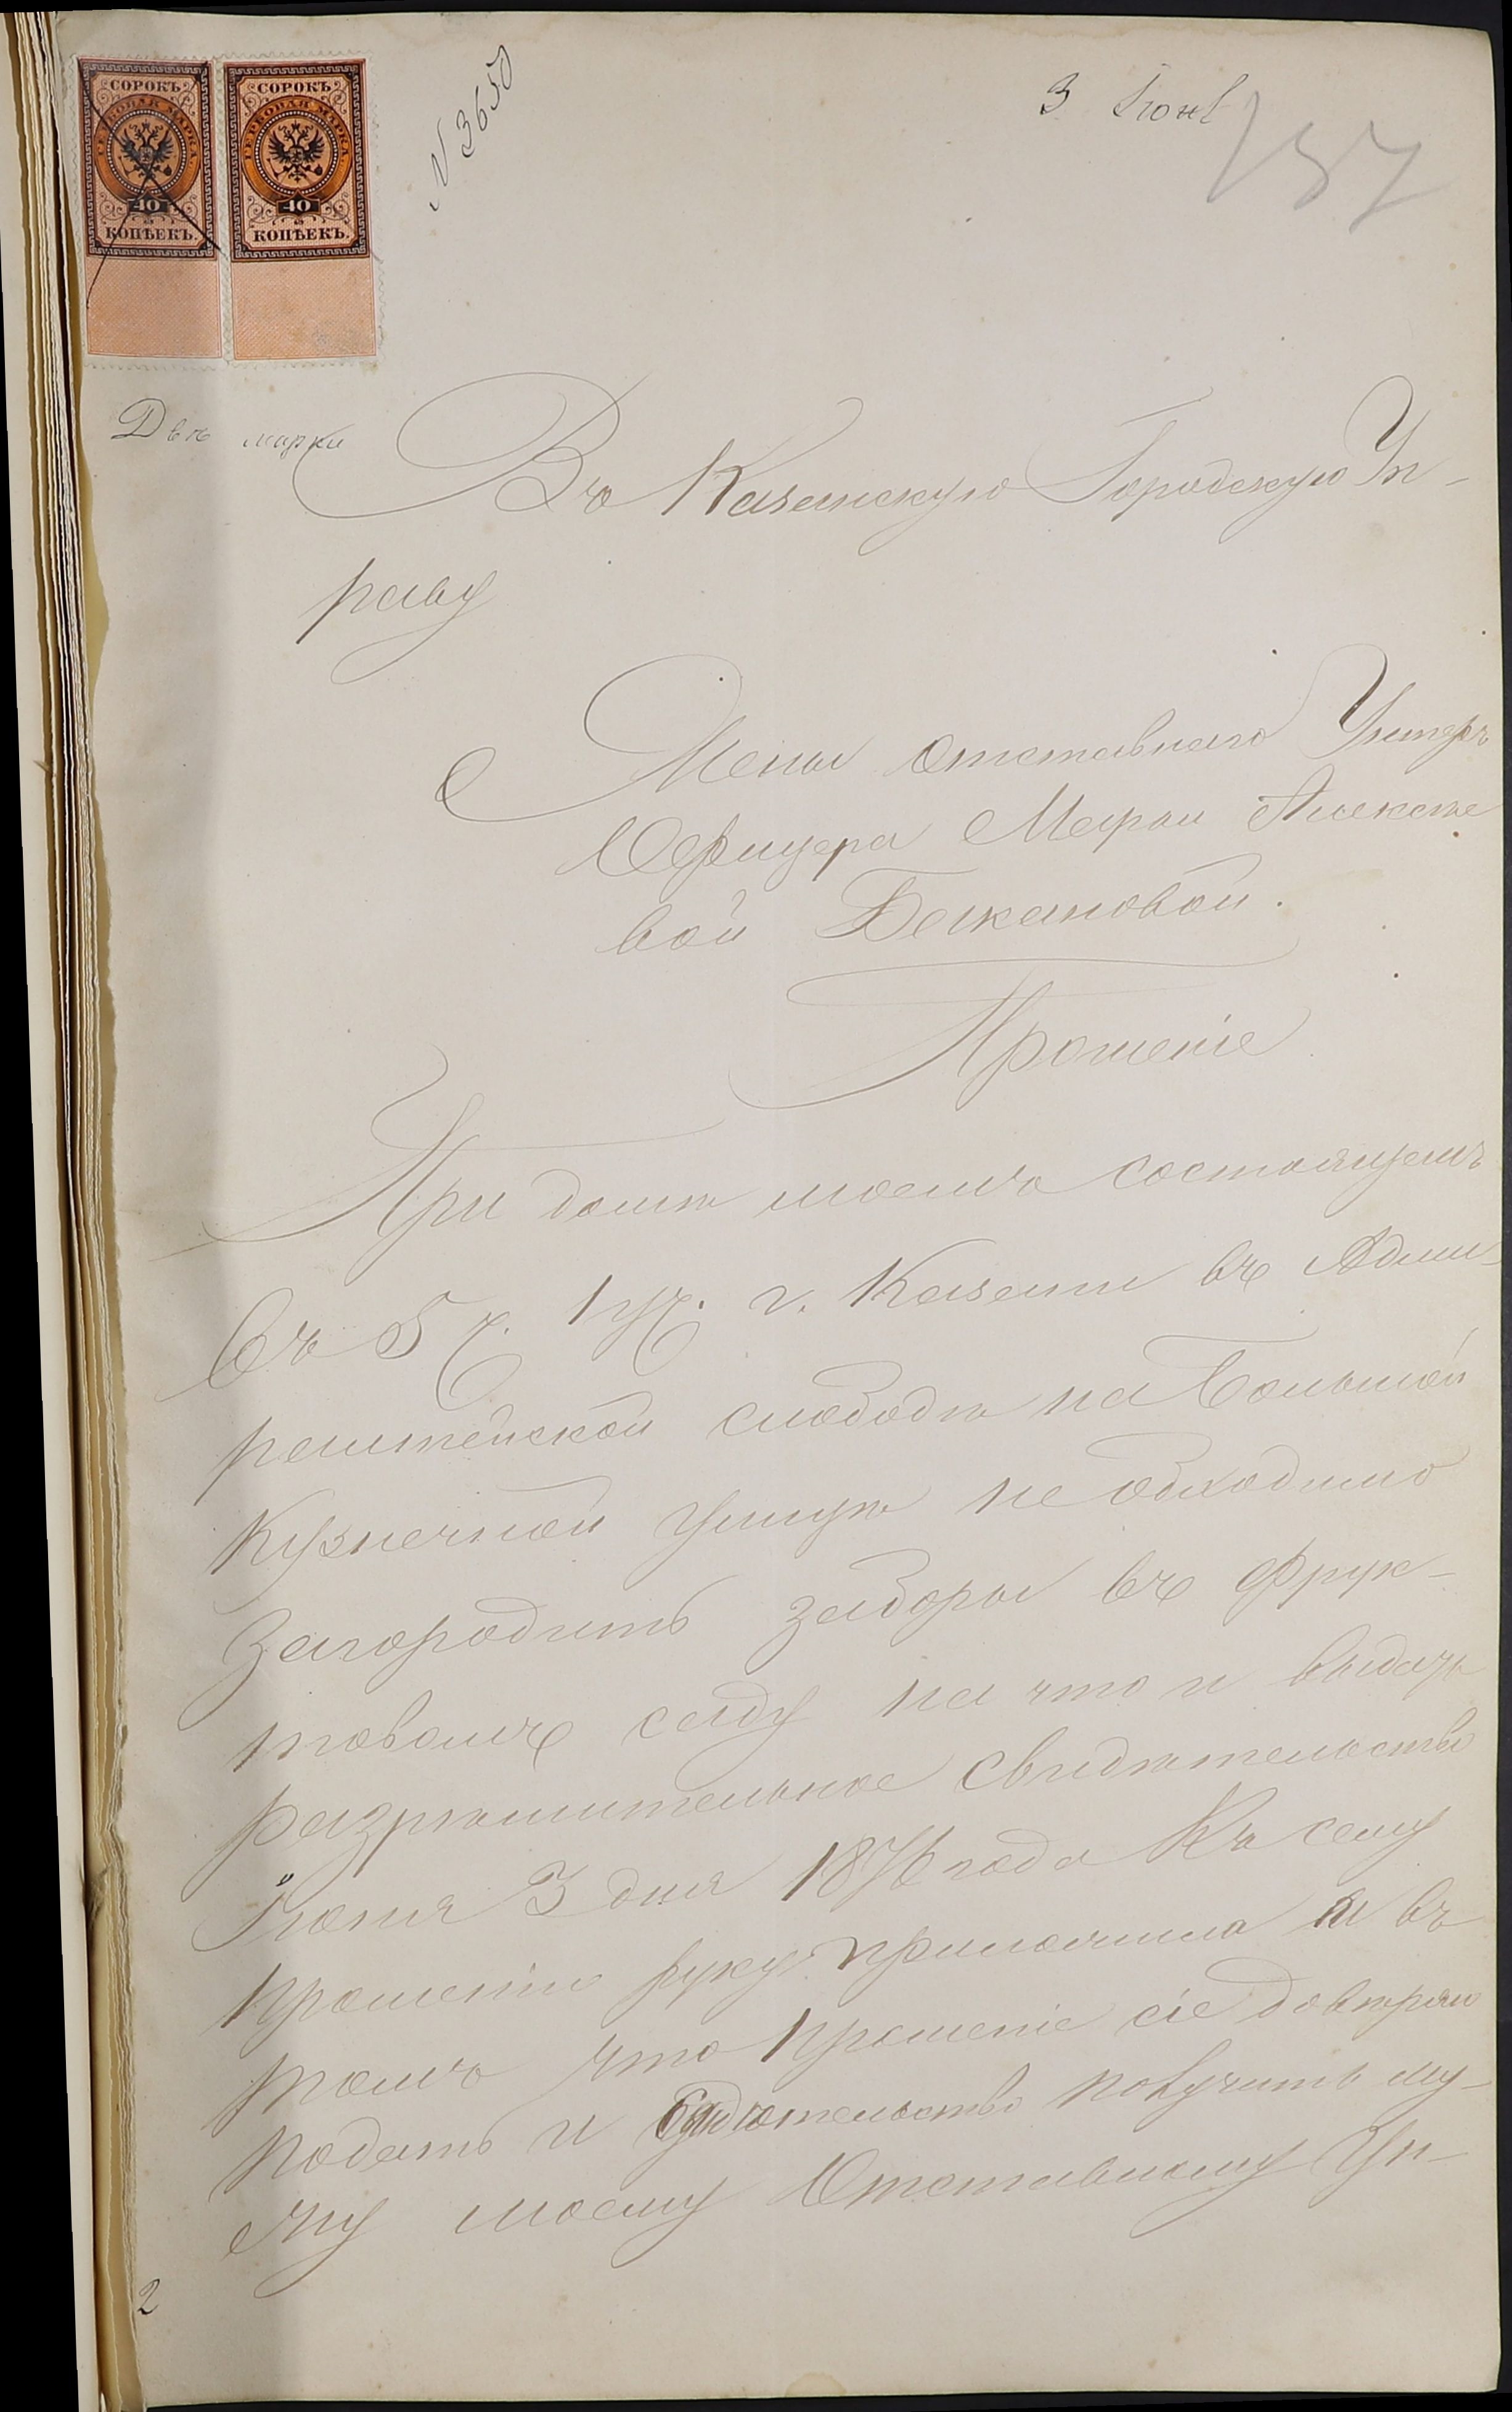 СОРОКЪ
ГЕРБОВАЯ МАРКА
40
КОПѢЕКЪ.
СОРОКЪ
ГЕРБОВАЯ МАРКА
40
КОПѢЕКЪ.
N 3650
3 Іюня
157
Двѣ марки
Въ Казанскую Городскую Уп-
раву
Жены отставнаго Унтеръ
Офицера Марфы Алексѣе
вой Бакановой.
Прошеніе
При домѣ моемъ состоящемъ
въ 5 ч. 1 уч. г. Казани въ Адми-
ралтейской слободѣ на Большой
Кузнечной улицѣ необходимо
загородить заборы въ фрук-
товомъ саду на что и выдать
разрѣшительное свидѣтельство
Іюня 3 дня 1876 года Къ сему
прошенію руку приложила и въ
томъ что прошеніе сіе довѣряю
подать и свидѣтельство получить му-
жу моему Отставному Ун-
2